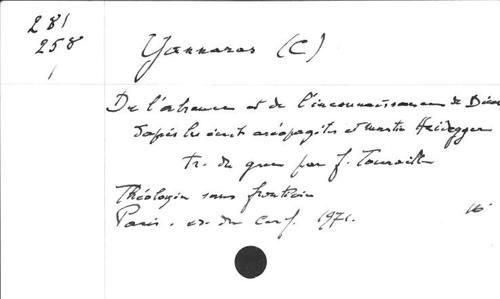 281
258
1
Yannaras (C)
De l'absence et de l'inconnaissance de Dieu
d'après les écrits aréopagites et Martin Heidegger
tr. du grec par J. Touraille
Théologie sans frontière
Paris. éd. du Cerf. 1971.
16°